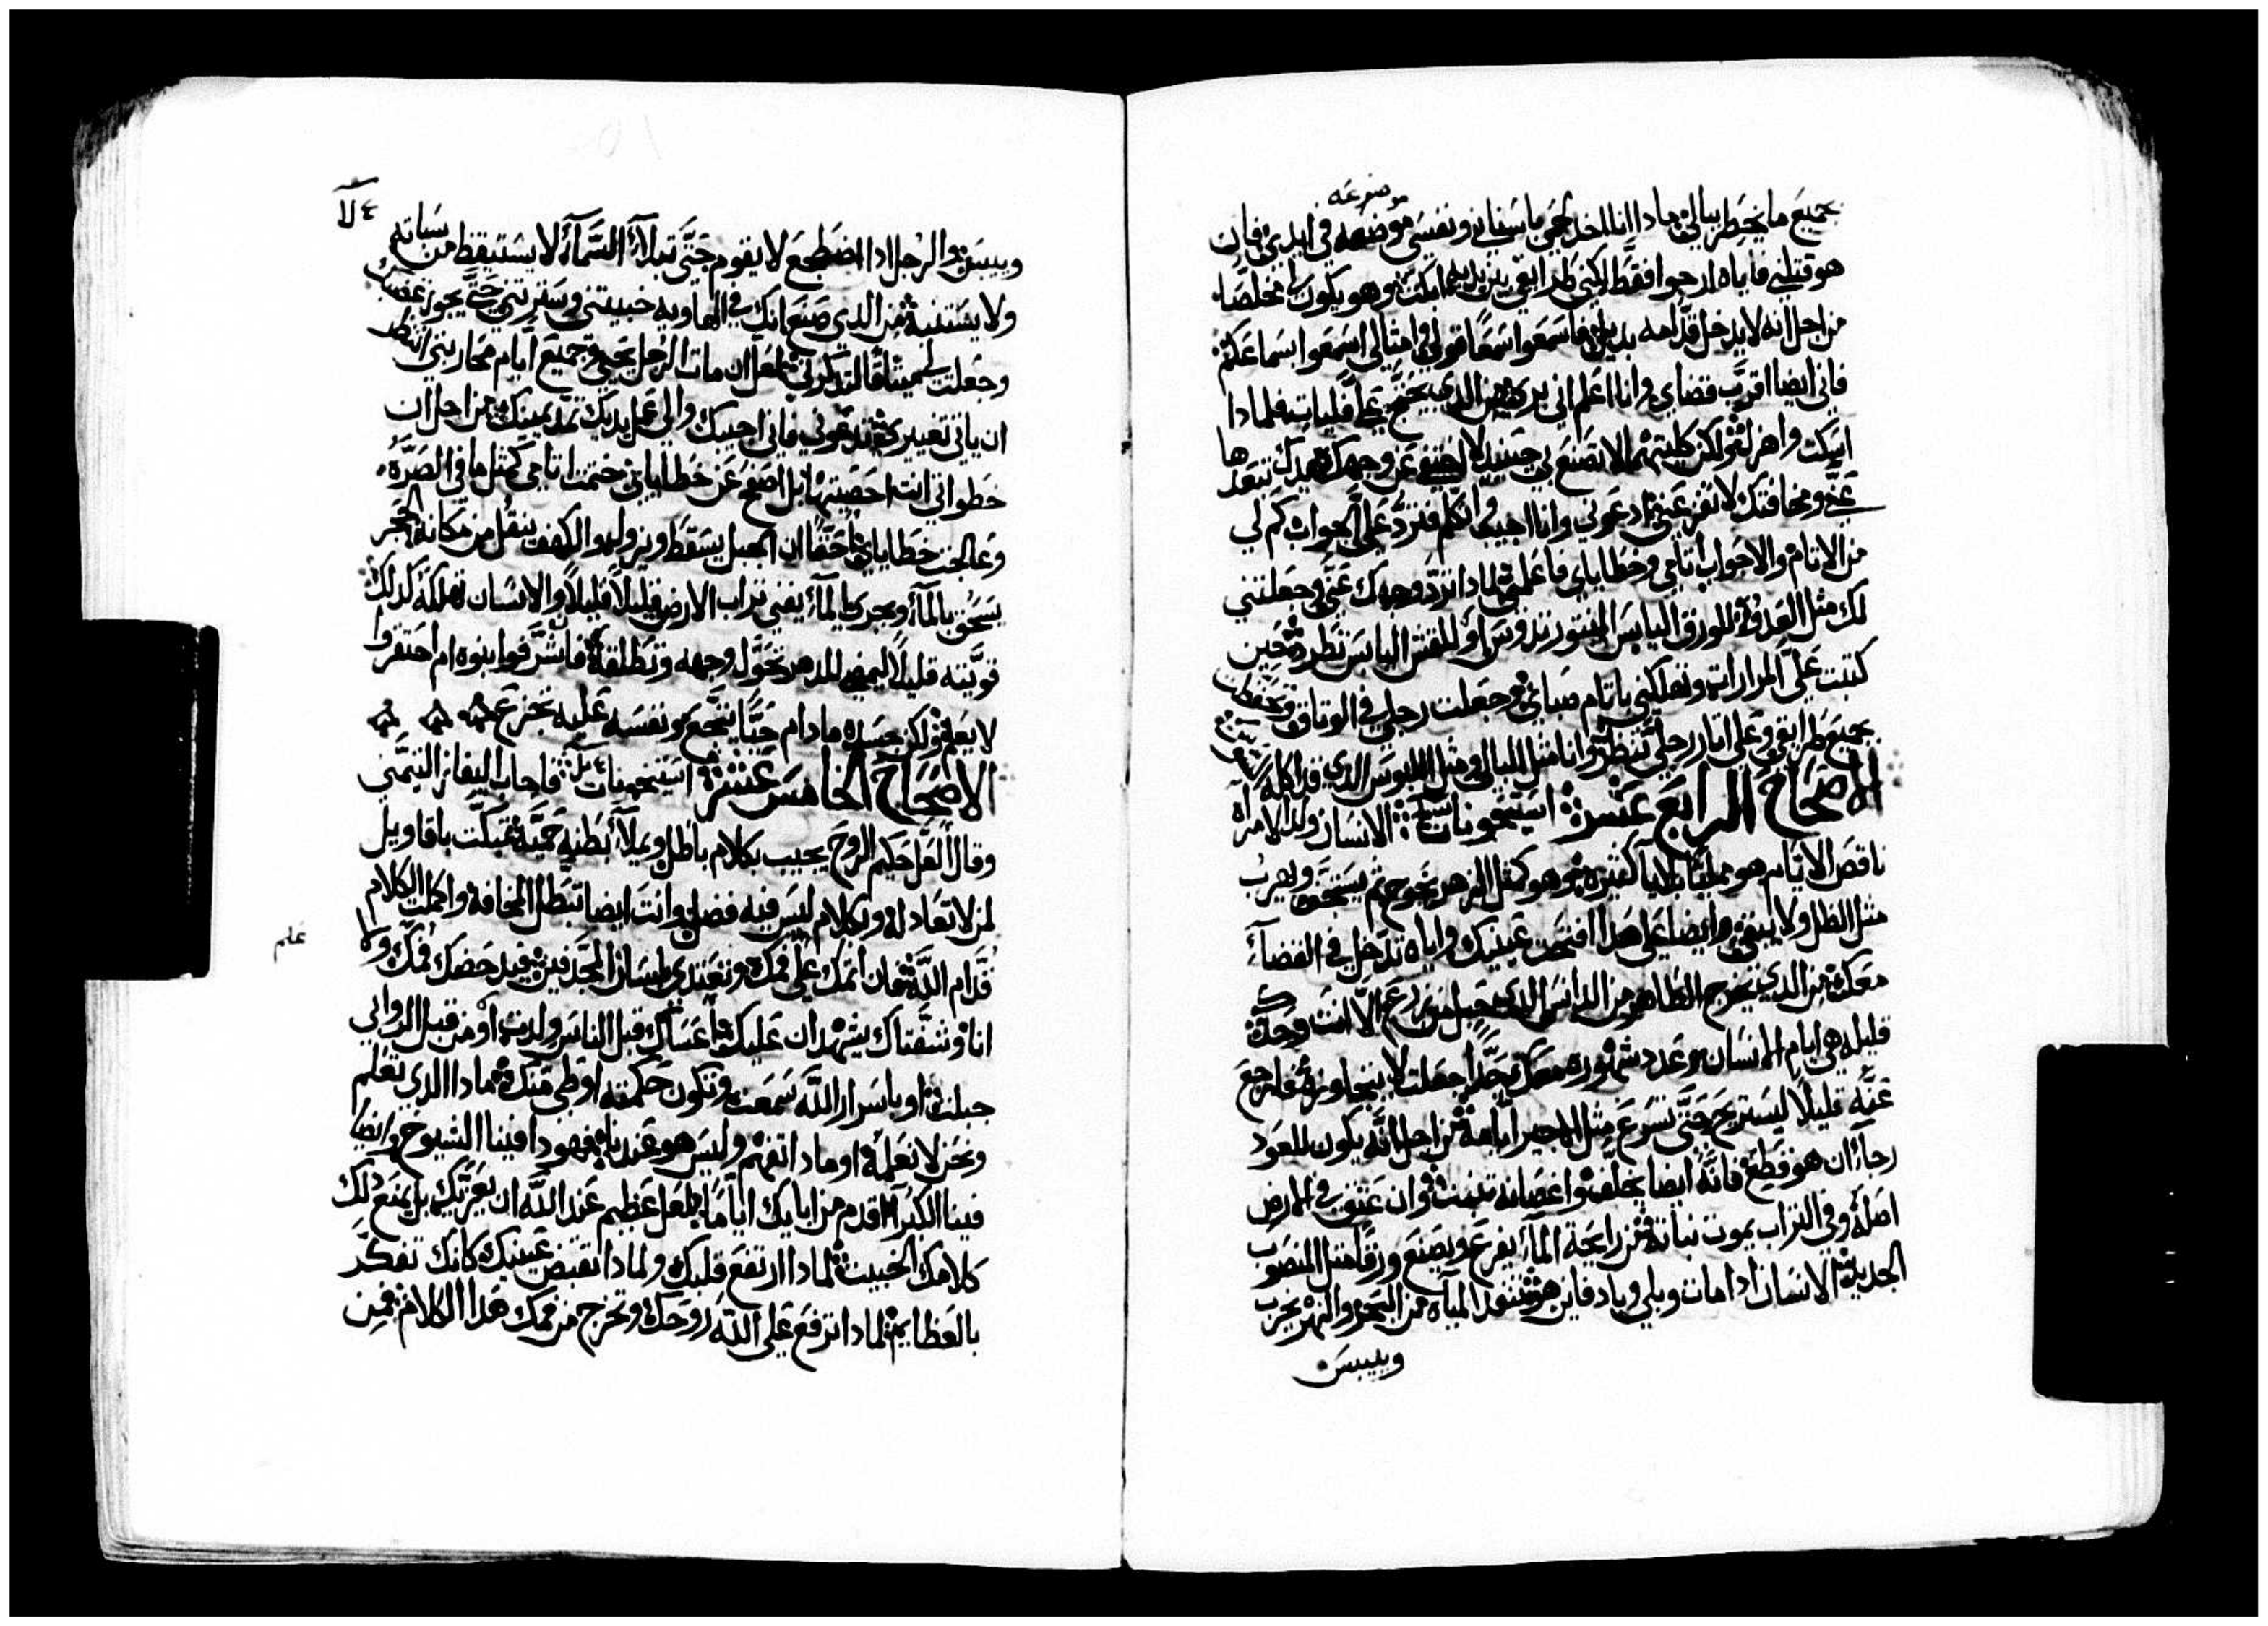 موضوعه
جميع ما يخطر ببالي مادا انا اخد لحمي باسناني ونفسي موضعه في ايدي فان
هو قتلني فاياه ارجوا فقط لكني طرايقي بين يديه امكث وهو يكون لي مخلصا
من اجل انه لا يدخل قدامه بديل فاسمعوا سمعا قولي وامثالي اسمعوا بسماعكم
فاني ايضا اقرب قضاي وانا اعلم اني بري من الدي يحتج علي فليات فلمادا
اسكت واهزل ولكن كلتيهما لا تصنع بي حينيد لا اختفي عن وجهك يدك تبعدها
عني ومخافتك لا تفزعني ادعوني وانا اجيب او اتكلم فترد علي الجواب كم لي
من الاتام والاحواب اتامي وخطاياي فاعلمني لمادا ترد وجهك عني وجعلتني
لك مثل العدو للورق اليابس المنتور تدوس او للقش اليابس تطرد حين
كتبت علي المرارات وتهلكني باتام صباي وجعلت رجلي في الوتاق وتحفظت
بجميع طرايقي وعلي اتار رجلي تنظر وانا مثل البالي ومثل الملبوس الدي قد اكله
الاصحاح الرابع عشر استيخونات الانسان ولد الامراه
ناقص الايام هو ممتليا بلايا كثيره وهو كمثل الزهر يخرج ثم ينسحق ويهرب
مثل الظل ولا يبقي وايضا علي هدا افتحت عينيك واياه تدخل في القضآء
معك من الدي يخرج الطاهر من الدانس الدي حبل من زرع الا انت وحدك
قليله هي ايام الانسان وعدد شهوره معك حدا جعلت لا يتجاوزه فارجع
عنه قليلا ليستريح حتي تسرع مثل الاجير ايامه من اجل انه يكون للعود
رجآء ان هو قطع فانه ايضا يخلف واغصانه تنبت وان عتق في الارض
اصله وفي التراب يموت نباته من رايحة المآء يفرع ويصنع ورقا مثل المنصوب
الجديد الانسان ادا مات وبلي وباد فاين هو تنفد المياه من البحر والنهر يخرب
وييبس
وييبس والرجل ادا اضطجع لا يقوم حتي تبلآء السمآء لا يستيقظ من سباته
ولا يستنبه من الدي صنع انك في الهاويه خبيتني وسترتني حتي يجوز غضبك
وجعلت لي ميثاقا لتدكرني لعل ان مات الرجل يحيي وجميع ايام محاربتي انتظر
ان ياتي تغييري تدعوني فاني اجيبك والي عمل يديك تمد يمينك من اجل ان
خطواتي انت احصيتها بل اصفح عن خطاياي ختمت اتامي كمثل ما في الصره
وعالجت خطاياي حقا ان الجبل يسقط ويزول والكهف ينقل من مكانه الحجر
يسحق بالمآء وبجري المآء يفني تراب الارض قليلا قليلا والانسان تهلكه كدلك
قويته قليلا ليمضي للدهر تحول وجهه وتطلقه فان شرفوا بنوه ام احتقروا
لا يعلم ولكن جسده مادام حيا يتجع ونفسه عليه تجزع
الاصحاح الخامس عشر استيخونات فاجاب اليفاز التيمني
وقال العل حكيم الروح يجيب بكلام باطل ويملآء بطنه حمية تبكت باقاويل
لمن لا تعادله وبكلام ليس فيه فضل وانت ايضا تبطل المخافه واكملت الكلام
قدام الله فان اتمك علم فمك وتقتدي بلسان المجدفين فيدحضك فمك ولا
علم
انا وشفتاك يشهدان عليك اعساك قبل الناس ولدت او من قبل الروابي
جبلت او باسرار الله سمعت وتكون حكمته اوطي منك مادا الدي تعلم
ونحن لا نعلمه او مادا تفهم وليس هو عندنا فهودا فينا الشيوخ وايضا
فينا الكبرآء اقدم من ابايك اياما لعل عظيم عند الله ان يعزيك بل يمنع دلك
كلامك الخبيث لمادا ارتفع قلبك ولمادا تقبض عينيك كانك تفكر
بالعظايم لمادا ترفع علي الله روحك وتخرج من فمك هدا الكلام فمن